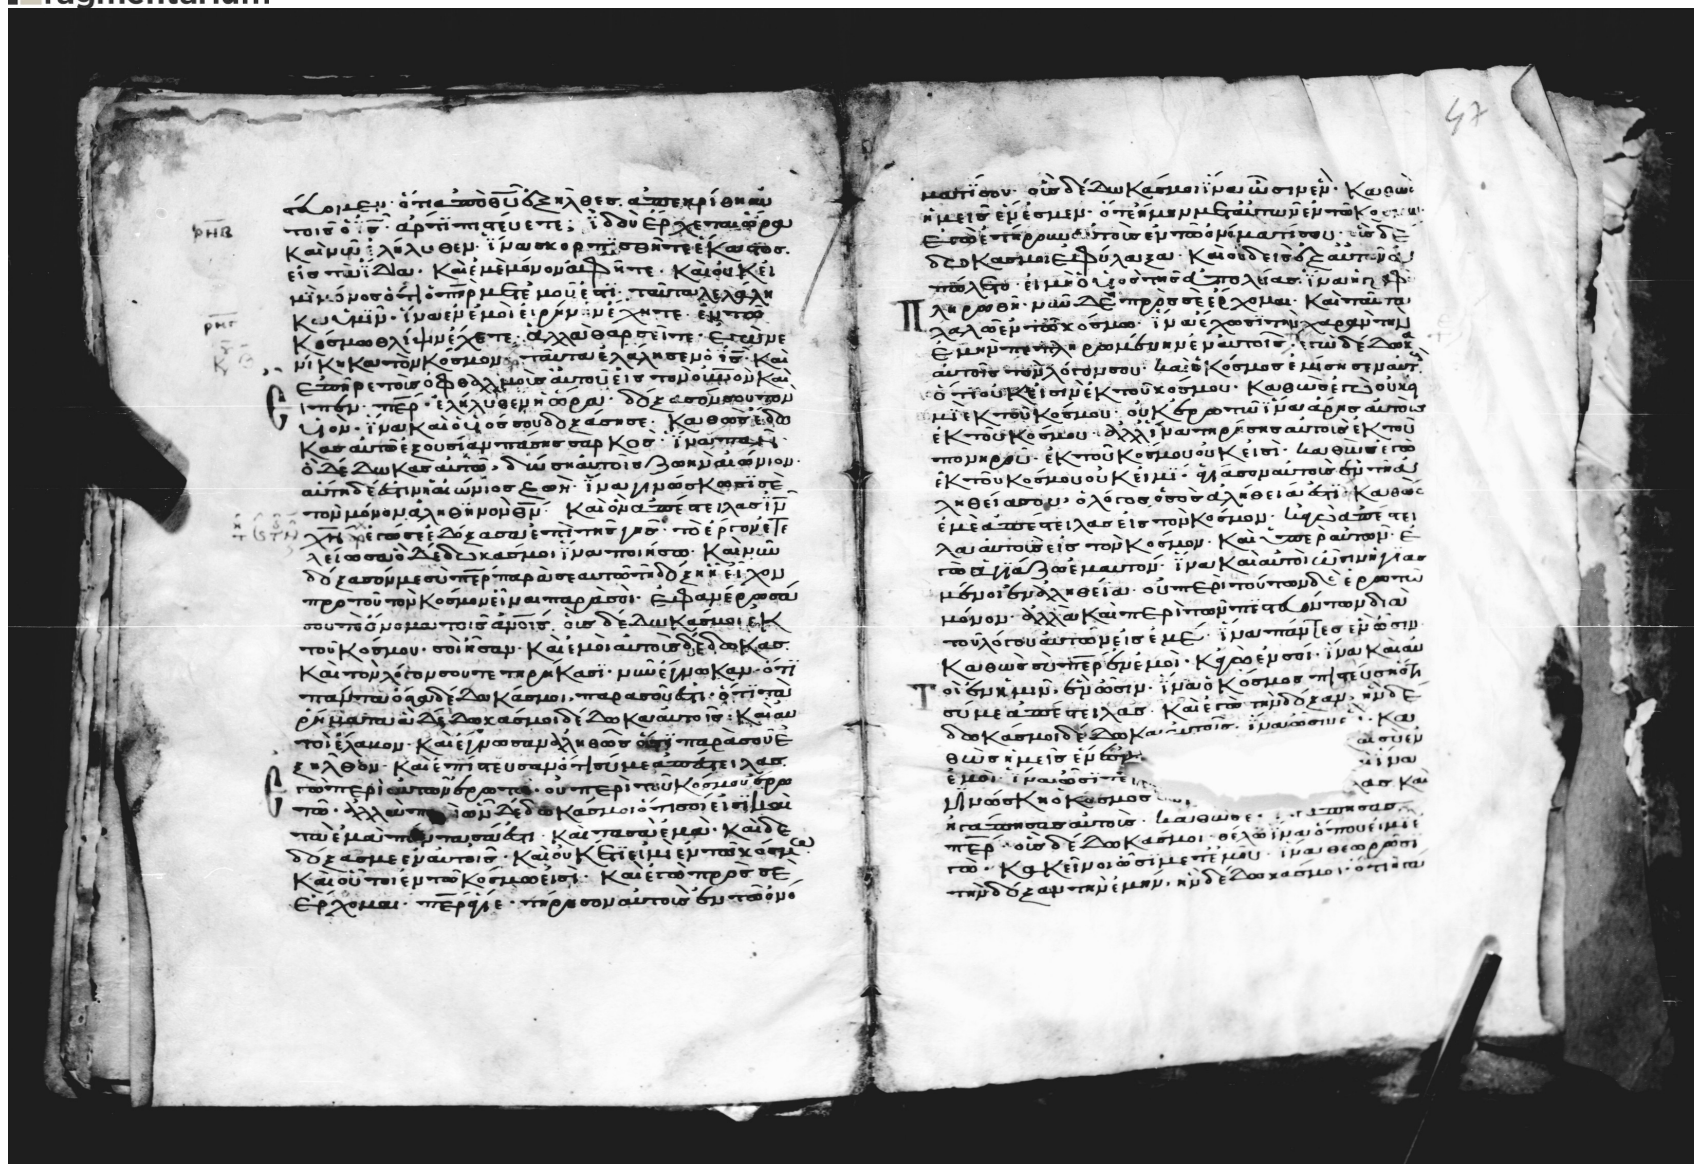 ὅτι ἀπὸ θῡ ἐξῆλθες. ἀπεκρίθη αὐ
τοῖς ὁ ις̄· ἄρτι πιστεύετε; ἰδοὺ ἔρχεται ὥρα
καὶ νῦν ἐλήλυθεν· ἵνα σκορπισθῆτε ἕκαστος.
εἰς τὰ ἴδια· καὶ ἐμὲ μόνον ἀφῆτε· καὶ οὐκ εἰ
μὶ μόνος ὅτι ὁ πηρ μετ' ἐμοῦ ἐστι· ταῦτα λελάλη
κα ὑμῖν· ἵνα ἐν ἐμοὶ εἰρήνην ἔχητε· ἐν τῶ
κόσμω θλίψιν ἔχετε· ἀλλὰ θαρσεῖτε· ἐγὼ νε
νίκηκα τὸν κόσμον· ταῦτα ἐλάλησεν ὁ ις̄· καὶ
ἐπῆρε τοὺς ὀφθαλμοὺς αὐτοῦ εἰς τὸν οὐνον καὶ
εἶπεν· περ· ἐλήλυθεν ἡ ὥρα· δόξασόν σου τὸν
υἱόν· ἵνα καὶ ὁ υἱός σου δοξάση σε· καθὼς ἔδω
κας αὐτῶ ἐξουσίαν πάσης σαρκός· ἵνα πᾶν
ὃ δέδωκας αὐτῶ, δώσῃ αὐτοῖς ζωὴν αἰώνιον·
αὕτη δέ ἐστιν ἡ αἰώνιος ζωή· ἵνα γινώσκωσί σε
τὸν μόνον ἀληθινὸν θν̄· καὶ ὃν ἀπέστειλας ιν̄
χν̄· ἐγώ σε ἐδόξασα ἐπὶ τῆς γῆς· τὸ ἔργον ἐτε
λείωσα ὃ δέδωκάς μοι ἵνα ποιήσω· καὶ νῦν
δόξασόν με σὺ περ παρὰ σεαυτῶ τῆ δόξη ἧ εἶχον
πρὸ τοῦ τὸν κόσμον εἶναι παρὰ σοί· ἐφανέρωσά
σου τὸ ὄνομα τοῖς ανοις· οὓς δέδωκάς μοι ἐκ
τοῦ κόσμου· σοὶ ἦσαν· καὶ ἐμοὶ αὐτοὺς δέδωκας.
καὶ τὸν λόγον σου τετηρήκασι· νῦν ἔγνωκαν· ὅτι
πάντα ὅσα δέδωκάς μοι, παρὰ σοῦ ἐστι· ὅτι τὰ
ῥήματα ἃ δέδωκάς μοι δέδωκα αὐτοῖς· καὶ αὐ
τοὶ ἔλαβον· καὶ ἔγνωσαν ἀληθῶς ὅτι παρὰ σοῦ ἐ
ξῆλθον· καὶ ἐπίστευσαν ὅτι σύ με ἀπέστειλας.
ἐγὼ περὶ αὐτῶν ἐρωτῶ· οὐ περὶ τοῦ κόσμου ἐρω
τῶ· ἀλλὰ περὶ ὧν δέδωκάς μοι ὅτι σοί εἰσι καὶ
τὰ ἐμὰ πάντα σά ἐστι· καὶ τὰ σὰ ἐμά· καὶ δε
δόξασμαι ἐν αὐτοῖς· καὶ οὐκ ἔτι εἰμὶ ἐν τῶ κόσμω
καὶ οὗτοι ἐν τῶ κόσμω εἰσί· καὶ ἐγὼ πρὸς σὲ
ἔρχομαι· περ ἅγιε· τήρησον αὐτοὺς ἐν τῶ ὀνό
ρηβ
ρηγ
47
ματί σου· οὓς δέδωκάς μοι ἵνα ὦσιν ἕν· καθὼς
ἡμεῖς ἕν ἐσμεν· ὅτε ἤμην μετ' αὐτῶν ἐν τῶ κόσμω
ἐγὼ ἐτήρουν αὐτοὺς ἐν τῶ ὀνόματί σου· οὓς δέ
δωκάς μοι ἐφύλαξα· καὶ οὐδεὶς ἐξ αὐτῶν ἀ
πώλετο· εἰ μὴ ὁ υἱὸς τῆς ἀπωλείας. ἵνα ἡ
πληρωθῆ· νῦν δὲ πρὸς σὲ ἔρχομαι· καὶ ταῦτα
λαλῶ ἐν τῶ κόσμω· ἵνα ἔχωσι τὴν χαρὰν τὴν
ἐμὴν πεπληρωμένην ἐν αὐτοῖς· ἐγὼ δέδωκα
αὐτοῖς τὸν λόγον σου· καὶ ὁ κόσμος ἐμίσησεν αὐτούς
ὅτι οὐκ εἰσὶν ἐκ τοῦ κόσμου· καθὼς ἐγὼ οὐκ εἰ
μὶ ἐκ τοῦ κόσμου· οὐκ ἐρωτῶ ἵνα ἄρης αὐτοὺς
ἐκ τοῦ κόσμου· ἀλλ' ἵνα τηρήσης αὐτοὺς ἐκ τοῦ
πονηροῦ· ἐκ τοῦ κόσμου οὐκ εἰσί· καθὼς ἐγὼ
ἐκ τοῦ κόσμου οὐκ εἰμί· ἁγίασον αὐτοὺς ἐν τῆ ἀ
ληθεία σου· ὁ λόγος ὁ σὸς ἀλήθειά ἐστι· καθὼς
ἐμὲ ἀπέστειλας εἰς τὸν κόσμον· κἀγὼ ἀπέστει
λα αὐτοὺς εἰς τὸν κόσμον· καὶ ὑπὲρ αὐτῶν· ἐ
γὼ ἁγιάζω ἐμαυτόν· ἵνα καὶ αὐτοὶ ὦσιν ἡγιασ
μένοι ἐν ἀληθεία· οὐ περὶ τούτων δὲ ἐρωτῶ
μόνον· ἀλλὰ καὶ περὶ τῶν πιστευόντων διὰ
τοῦ λόγου αὐτῶν εἰς ἐμέ· ἵνα πάντες ἓν ὦσιν·
καθὼς σὺ περ ἐν ἐμοί· κἀγὼ ἐν σοί· ἵνα καὶ αὐ
τοὶ ἐν ἡμῖν ἓν ὦσιν· ἵνα ὁ κόσμος πιστεύση ὅτι
σύ με ἀπέστειλας· καὶ ἐγὼ τὴν δόξαν ἣν δέ
δωκάς μοι δέδωκα αὐτοῖς· ἵνα ὦσιν καὶ
θὼς ἡμεῖς ἕν
ἐμοί· ἵνα ὦσι τε
γινώσκη ὁ κόσμος
ἠγάπησας αὐτούς· καθὼς
περ· οὓς δέδωκάς μοι· θέλω ἵνα ὅπου εἰμὶ ἐ
γώ· κἀκεῖνοι ὦσι μετ' ἐμοῦ· ἵνα θεωρῶσι
τὴν δόξαν τὴν ἐμήν· ἣν δέδωκάς μοι· ὅτι